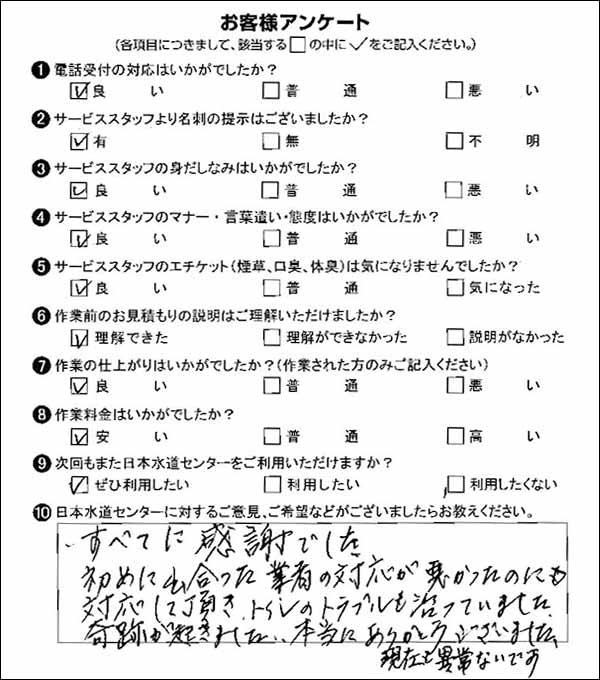 お客様アンケート
(各項目につきまして、該当する□の中に✓をご記入ください。)
❶ 電話受付の対応はいかがでしたか?
☑良い □普通 □悪い
❷ サービススタッフより名刺の提示はございましたか?
☑有 □無 □不明
❸ サービススタッフの身だしなみはいかがでしたか?
☑良い □普通 □悪い
❹ サービススタッフのマナー・言葉遣い・態度はいかがでしたか?
☑良い □普通 □悪い
❺ サービススタッフのエチケット(煙草、口臭、体臭)は気になりませんでしたか?
☑良い □普通 □気になった
❻ 作業前のお見積もりの説明はご理解いただけましたか?
☑理解できた □理解ができなかった □説明がなかった
❼ 作業の仕上がりはいかがでしたか?(作業された方のみご記入ください)
☑良い □普通 □悪い
❽ 作業料金はいかがでしたか?
☑安い □普通 □高い
❾ 次回もまた日本水道センターをご利用いただけますか?
☑ぜひ利用したい □利用したい □利用したくない
❿ 日本水道センターに対するご意見、ご希望などがございましたらお教えください。
すべてに感謝でした
初めに出合った業者の対応が悪かったのにも
対応して頂き、トイレのトラブルも治っていました、
奇跡が起きました、本当にありがとうございました、
現在も異常ないです